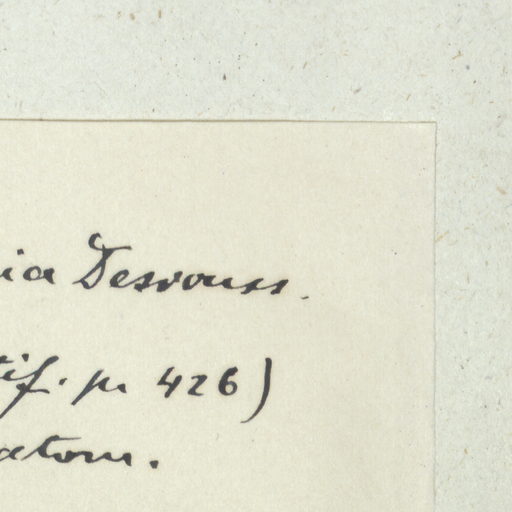 ia Desvouss.
tif. p. 426)
atom.